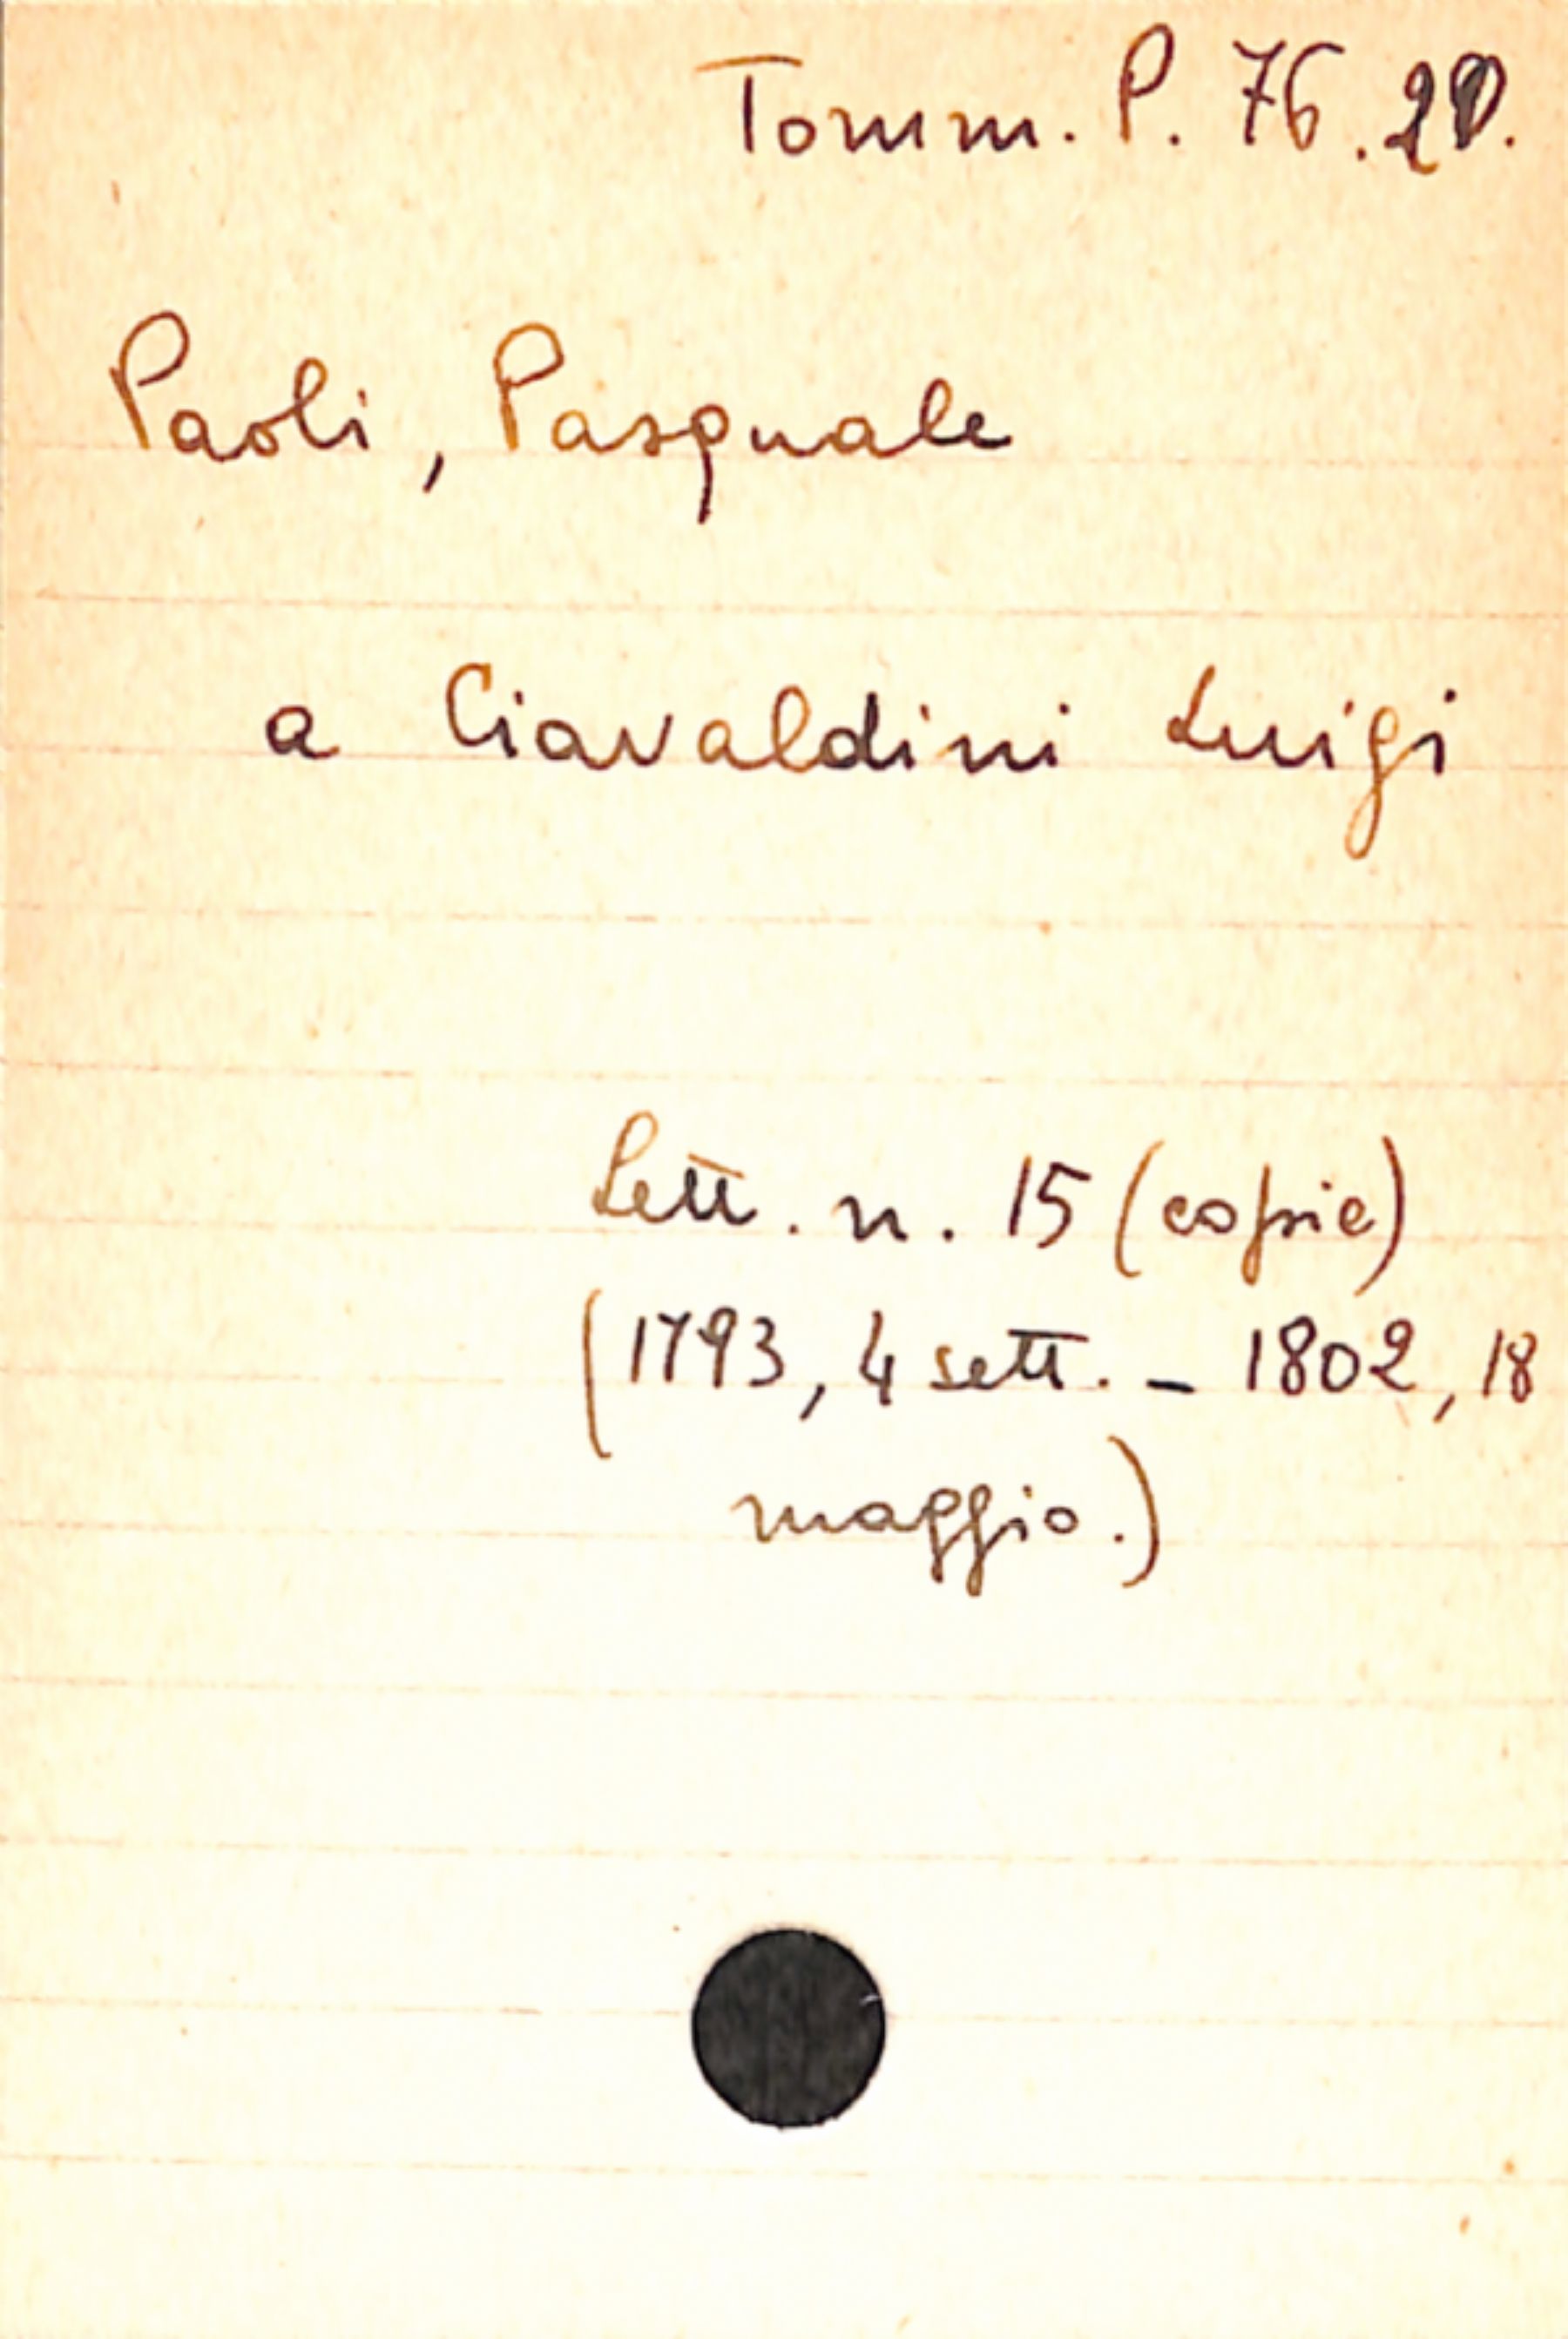 Tomm. P. 76. 20.
Paoli, Pasquale
a Ciavaldini Luigi
Lett. n. 15 (copie)
(1793, 4 sett. - 1802, 18
maggio.)